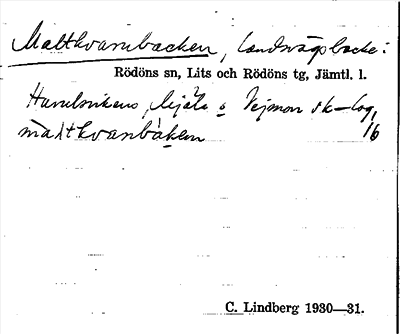 Maltkvarnbacken, landsvägsbacke:
Rödöns sn, Lits och Rödöns tg, Jämtl. l.
Vejmon sk-log,
màltkvanbàken 16
C. Lindberg 1930—31.